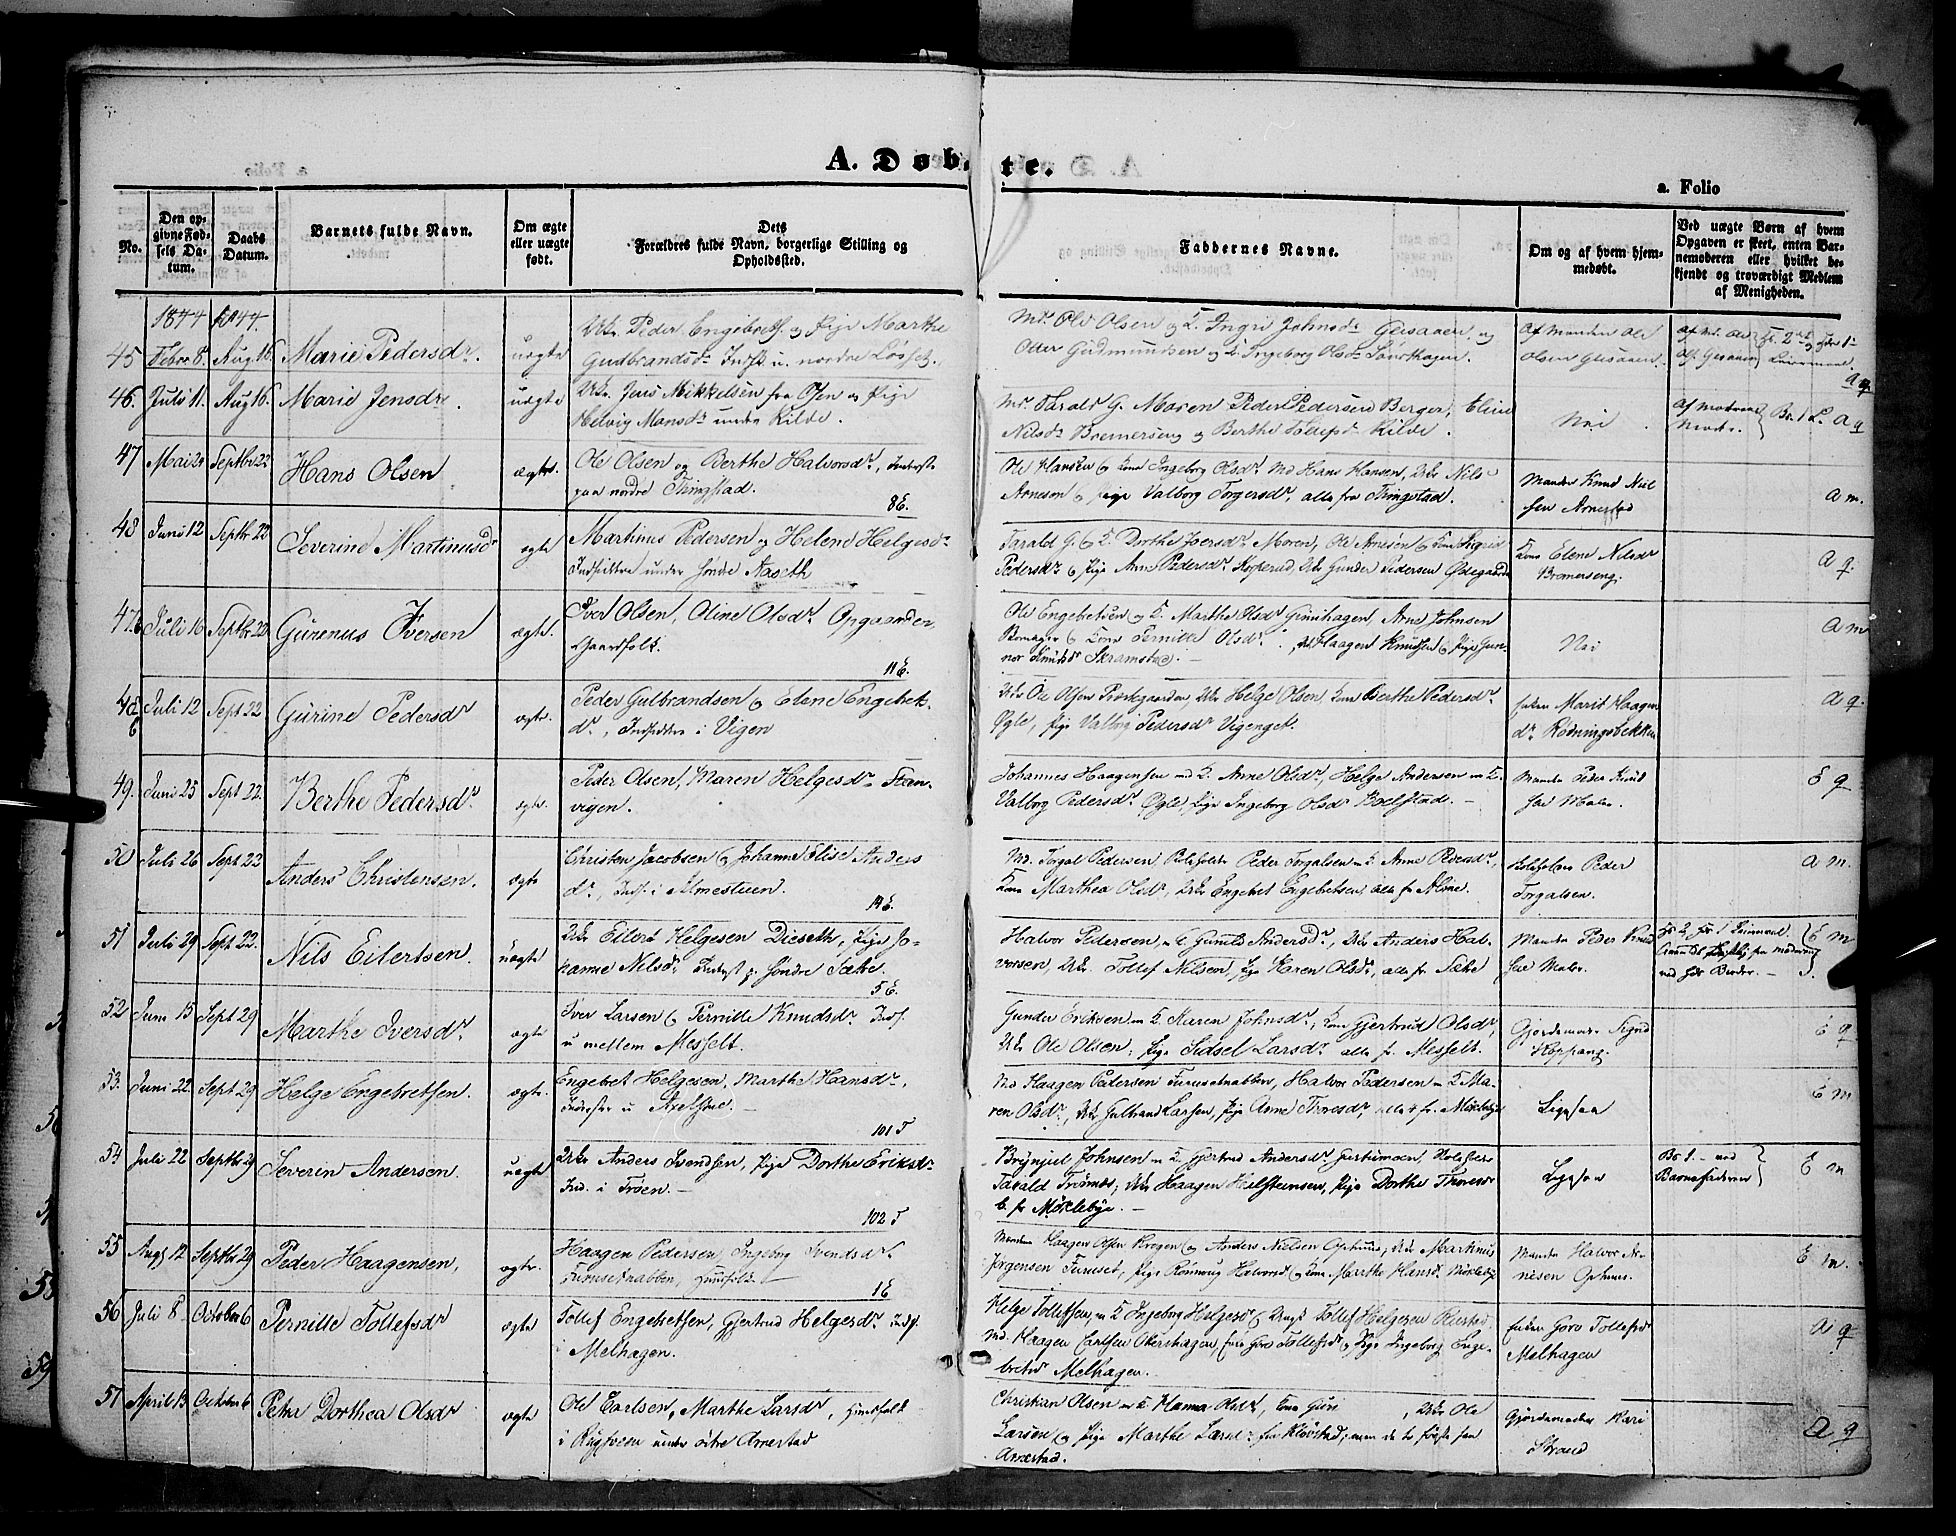 A. Døbte.
a. Folio
No.
Den opgivne Fødsels Datum.
Daabs Datum.
Barnets fulde Navn.
Om ægte eller uægte født.
Dets Forældres fulde Navn, borgerlige Stilling og Opholdssted.
Faddernes Navne.
Om og af hvem hjemmedøbt.
Ved uægte Børn af hvem Opgaven er skeet, enten Barnemoderen eller hvilket bekjendt og troværdigt Medlem af Menigheden.
1844 1844.
45 Febr 8. Aug 16. Marie Pedersdr. uægte
Ukr. Peder Engebrets. og Pige Marthe
Gudbrandsdr. Indst. u. nordre Løsset.
Md. Ole Olsen og K. Ingri Johnsdr Glesaaen, og
Otter Gudmundsen og K. Ingeborg Olsdr
Af Manden Ole
Olsen Glesaaen
46. Juli 11. Aug 16. Marie Jensdr. uægte
Ukr. Jens Mikkelsen fra Osen og Pige
Helvig Monsdr under Kilde.
Md. Tarald G. Moren Peder Pedersen Berger, Eline
Nilsdr Bremerseng og Berthe Kilde.
Nei
a q
47 Mai 21 Septbr 22 Hans Olsen ægte.
Ole Olsen og Berthe Halvorsdr, Inderste
paa nordre Tingstad.
8 E.
Ole Hansen & Kone Ingeborg Olsdr Md Hans Hansen, Ukr Nils
Arnesen & Pige Valborg Torgersdr, alle fra Tingstad.
Manden Knud Niel
sen Arnestad
a m.
48 Juni 12 Septbr 22 Severine Martinusdr ægte
Martinus Pedersen og Helene Helgesdr
Indsiddere under søndre Aaseth
Tarald G. & K. Dorthe Iversdr Moren, Ole Arnesen & Kone Sigrid
Pedersdr & Pige Anne Pedersdr Koperud, Ukr Gunder Pedersen Ødegaarden
Kone Elene Nilsdr
Bremerseng.
a q.
47.b Juli 16 Septbr 22 Gurenus Iversen ægte.
Iver Olsen, Oline Olsdr Opgaarden
Gaardfolk.
11 E.
Ole Engebretsen og K. Marthe Olsdr Grinihagen, Arne Johnsen
& Kone Pernille Olsdr, Ukr Haagen Knudsen & Pige Gun-
nor Knudsdr Skramstad. -
Nei
a m
48 b Juli 12 Sept 22 Gurine Pedersdr ægte.
Peder Gulbrandsen og Elene Engebret-
dr, Indsiddere i Vigen
Ukr Ole Olsen Præstgaarden, Ukr Helge Olsen, Kone Berthe Pedersdr
Øgle, Pige Valborg Pedersdr Vigenget.
Enken Marit Haagens
dr. Rødningsbekken
a q.
49. Juni 25 Sept 22. Berthe Pedersdr. ægte.
Peder Olsen, Maren Helgesdr. Stan-
vigen.
Johannes Haagensen med K. Anne Olsdr, Helge Andersen m K.
Valborg Pedersdr. Øgle, Pige Ingeborg Olsdr Bolstad. -
Manden Peder Knud
sen Moløe.
E q
50 Juli 26 Sept 22 Anders Christensen. ægte
Christen Jacobsen & Johanne Elise Anders
dr., Inds. i Almestuen.
14 E.
Md. Torgal Pedersen Skoleholder Peder Torgalsen m K. Anne Pedersdr,
Kone Marthea Olsdr, Ukr Engebret Engebretsen, alle fr Alme.
Skoleholder Peder
Torgalsen.
a m.
51 Juli 29 Sept 22. Nils Eilertsen. uægte
Ukr Eilert Helgesen Dieseth, Pige Jo-
hanne Nilsdr Inderst p. søndre Sætre.
5 E.
Halvor Pedersen, m K Gunild Andersdr, Ukr Anders Hal-
vorsen, Ukr. Tollef Nilsen, Pige Karen Olsdr, alle fr Sætre
Manden Peder Knud
sen Moløe.
E m
52 Juni 15 Sept 29 Marthe Iversdr. ægte
Iver Larsen & Pernille Knudsdr. Inds.
u mellem Messelt.
Gunder Eriksen m K. Karen Johnsdr, Kone Gjertrud Olsdr,
Ukr Ole Olsen, Pige Sidsel Larsdr alle fr. Messelt.
Gjordemoder Sigrid
Koppang.
E q
53. Juni 22. Sept 29 Helge Engebretsen. ægte.
Engebret Helgesen, Marthe Hansdr.
Inderster u Axelstad. -
101 T
Md Haagen Pedersen Furusetnabben, Halvor Pedersen m K Ma-
ren Olsdr, Ukr Gulbrand Larsen, Pige Anne Thoresdr, alle 4 fr. Møklebye
Ligesaa
E m
54 Juli 22 Septbr 29 Severin Andersen. uægte
Ukr Anders Svendsen, Pige Dorthe Eriksdr
Ind. i Troen. -
102 T
Brynjul Johnsen m K. Gjertrud Andersdr Gartneimoen, Skoleholder
Tarald Trønnes; Ukr Haagen Halsteinsen, Pige Dorthe Thoresdr
b. fr Møklebye. -
Ligesaa
Barnefaderen
E m
55 Aug 12 Septbr 29 Peder Haagensen, ægte.
Haagen Pedersen, Ingeborg Svendsdr
Furusetnabben, Huusfolk. -
1 E
Manden Haagen Olsen Krogen & Anders Nielsen Ophuus, Ukr Martinus
Jørgensen Furuset, Pige Rønnoug Halvorsdr & Kone Marthe Hansdr Møklebye
Manden Halvor Ar-
nesen Ophuus.
E m.
56 Juli 8. October 6 Pernille Tollefsdr ægte
Tollef Engebretsen, Gjertrud Helgesdr. Inds.
i Melhagen.
Helge Tollefsen, m K Ingeborg Helgesdr & Ungk Tollef Helgesen
Md. Haagen Carlsen Akershagen, Enke Goro Tollefsdr & Pige Ingeborg Enge-
bretsdr Melhagen.
Enken Goro Tollefsdr
Melhagen
a q
57 April 13 October 6 Petra Dorthea Olsdr ægte
Ole Carlsen, Marthe Larsdr, Huusfolk
i Rugsveen under østre Arnestad
Christian Olsen m K Hanna Olsdr, Kone Guri , Ukr Ole
Larsen og Pige Marthe Larsdr fra Kløvstad; men de to første fra
Arnestad.
Gjordemoder Kari
Strand
a q